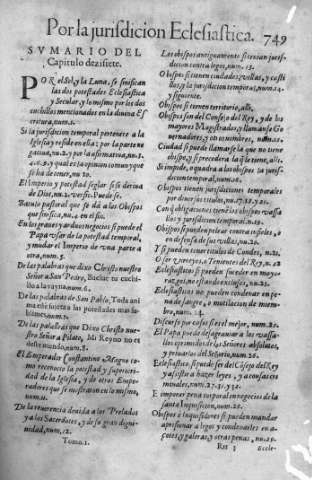 Por la jurisdicion Eclesiastica. 749
SVMARIO DEL
Capitulo dezisiete.
POR el Sol, y la Luna, se sinifican
las dos potestades Eclesiastica
y Secular, y lo mismo por los dos
cuchillos mencionados en la divina Es
critura, num.1.
Si la jurisdicion temporal pertenece a la
Iglesia y reside en ella: por la parte ne
gativa, nu.2. y por la afirmativa, nu.1.
y qual es la opinion comun y que
se ha de tener, nu.10.
El Imperio y potestad seglar si se deriva
de Dios, nu.2. versic. Puede se.
Baculo pastoral que se dà a los Obispos
que sinifica, nu.4. en el fin.
En los graves y arduos negocios si puede el
Papa usar de la potestad temporal,
y mudar el Imperio de una parte a
otra, num.5.
De las palabras que dixo Christo nuestro
Señor a San Pedro, Buelve tu cuchi-
llo a la vayna, num.6.
De las palabras de San Pablo, Toda ani
ma este sujeta a las potestades mas su-
blimes, num.
De las palabras que Dixo Christo nue-
stro Señor a Pilato, Mi Reyno no es
deste mundo, num.
El Emperador Constantino Magno co-
mo reconocio la potestad y superiori-
dad de la Iglesia, y de otros Empe-
radores que se mostraron en lo mismo,
num.11.
De la reverencia devida a los Prelados
y a los Sacerdotes, y de su digni-
dad, num.12.
Tomo.1.
Los obispos antiguamente si tenian juris-
dicion contra legos, num.13.
Obispos si tienen ciudades, villas, y casti-
llos, y la jurisdicion temporal, num.14.
y siguiente.
Obispos si tienen territorio, alli.
Obispos son del Consejo del Rey, y de los
mayores Magistrados, y llamanse Go
vernadores, y otros nombres, num.
Ciudad si puede llamarse la que no tiene
obispo, y si precederà la que le tiene, alli.
Si impide, o quadra a los obispos la juris
dicion temporal, num.16.
Obispos si tienen jurisdiciones temporales
por diversos titulos, nu.17.18.y 21.
Con que obligaciones tiene los obispos vassa
llos y jurisdicion temporal, n.19.
Obispos si pueden pelear contra infieles, o
en defensa de sus vassallos, nu.20.
Y si pueden tener titulos de Condes, nu.21.
O ser Virreyes, o Tenientes del Rey, n.22
Eclesiasticos si pueden suceder en mayo-
razgos, no siendo professos, num.23.
Eclesiasticos no pueden condenar en pe-
na de sangre, o mutilacion de miem-
bro, num.24.
Discurso por casos si es el mejor, num.25.
El Papa puede desagraviar a los vassa-
llos oprimidos de los Señores absolutos,
y privarlos del Señorio, num.26.
Eclesiasticos, si pueden ser del Consejo del Rey
ya, y assistir a hazer leyes, y a consejos cri
minales, num.27.31.y 32.
E imponer pena corporal en negocios de la
santa Inquisicion, num.28.
Obispos è Inquisidores si pueden mandar
aprisionar a legos y condenarlos en a-
çotes, galeras, y otras penas, nu.29.
Rrr 3 Eccle-